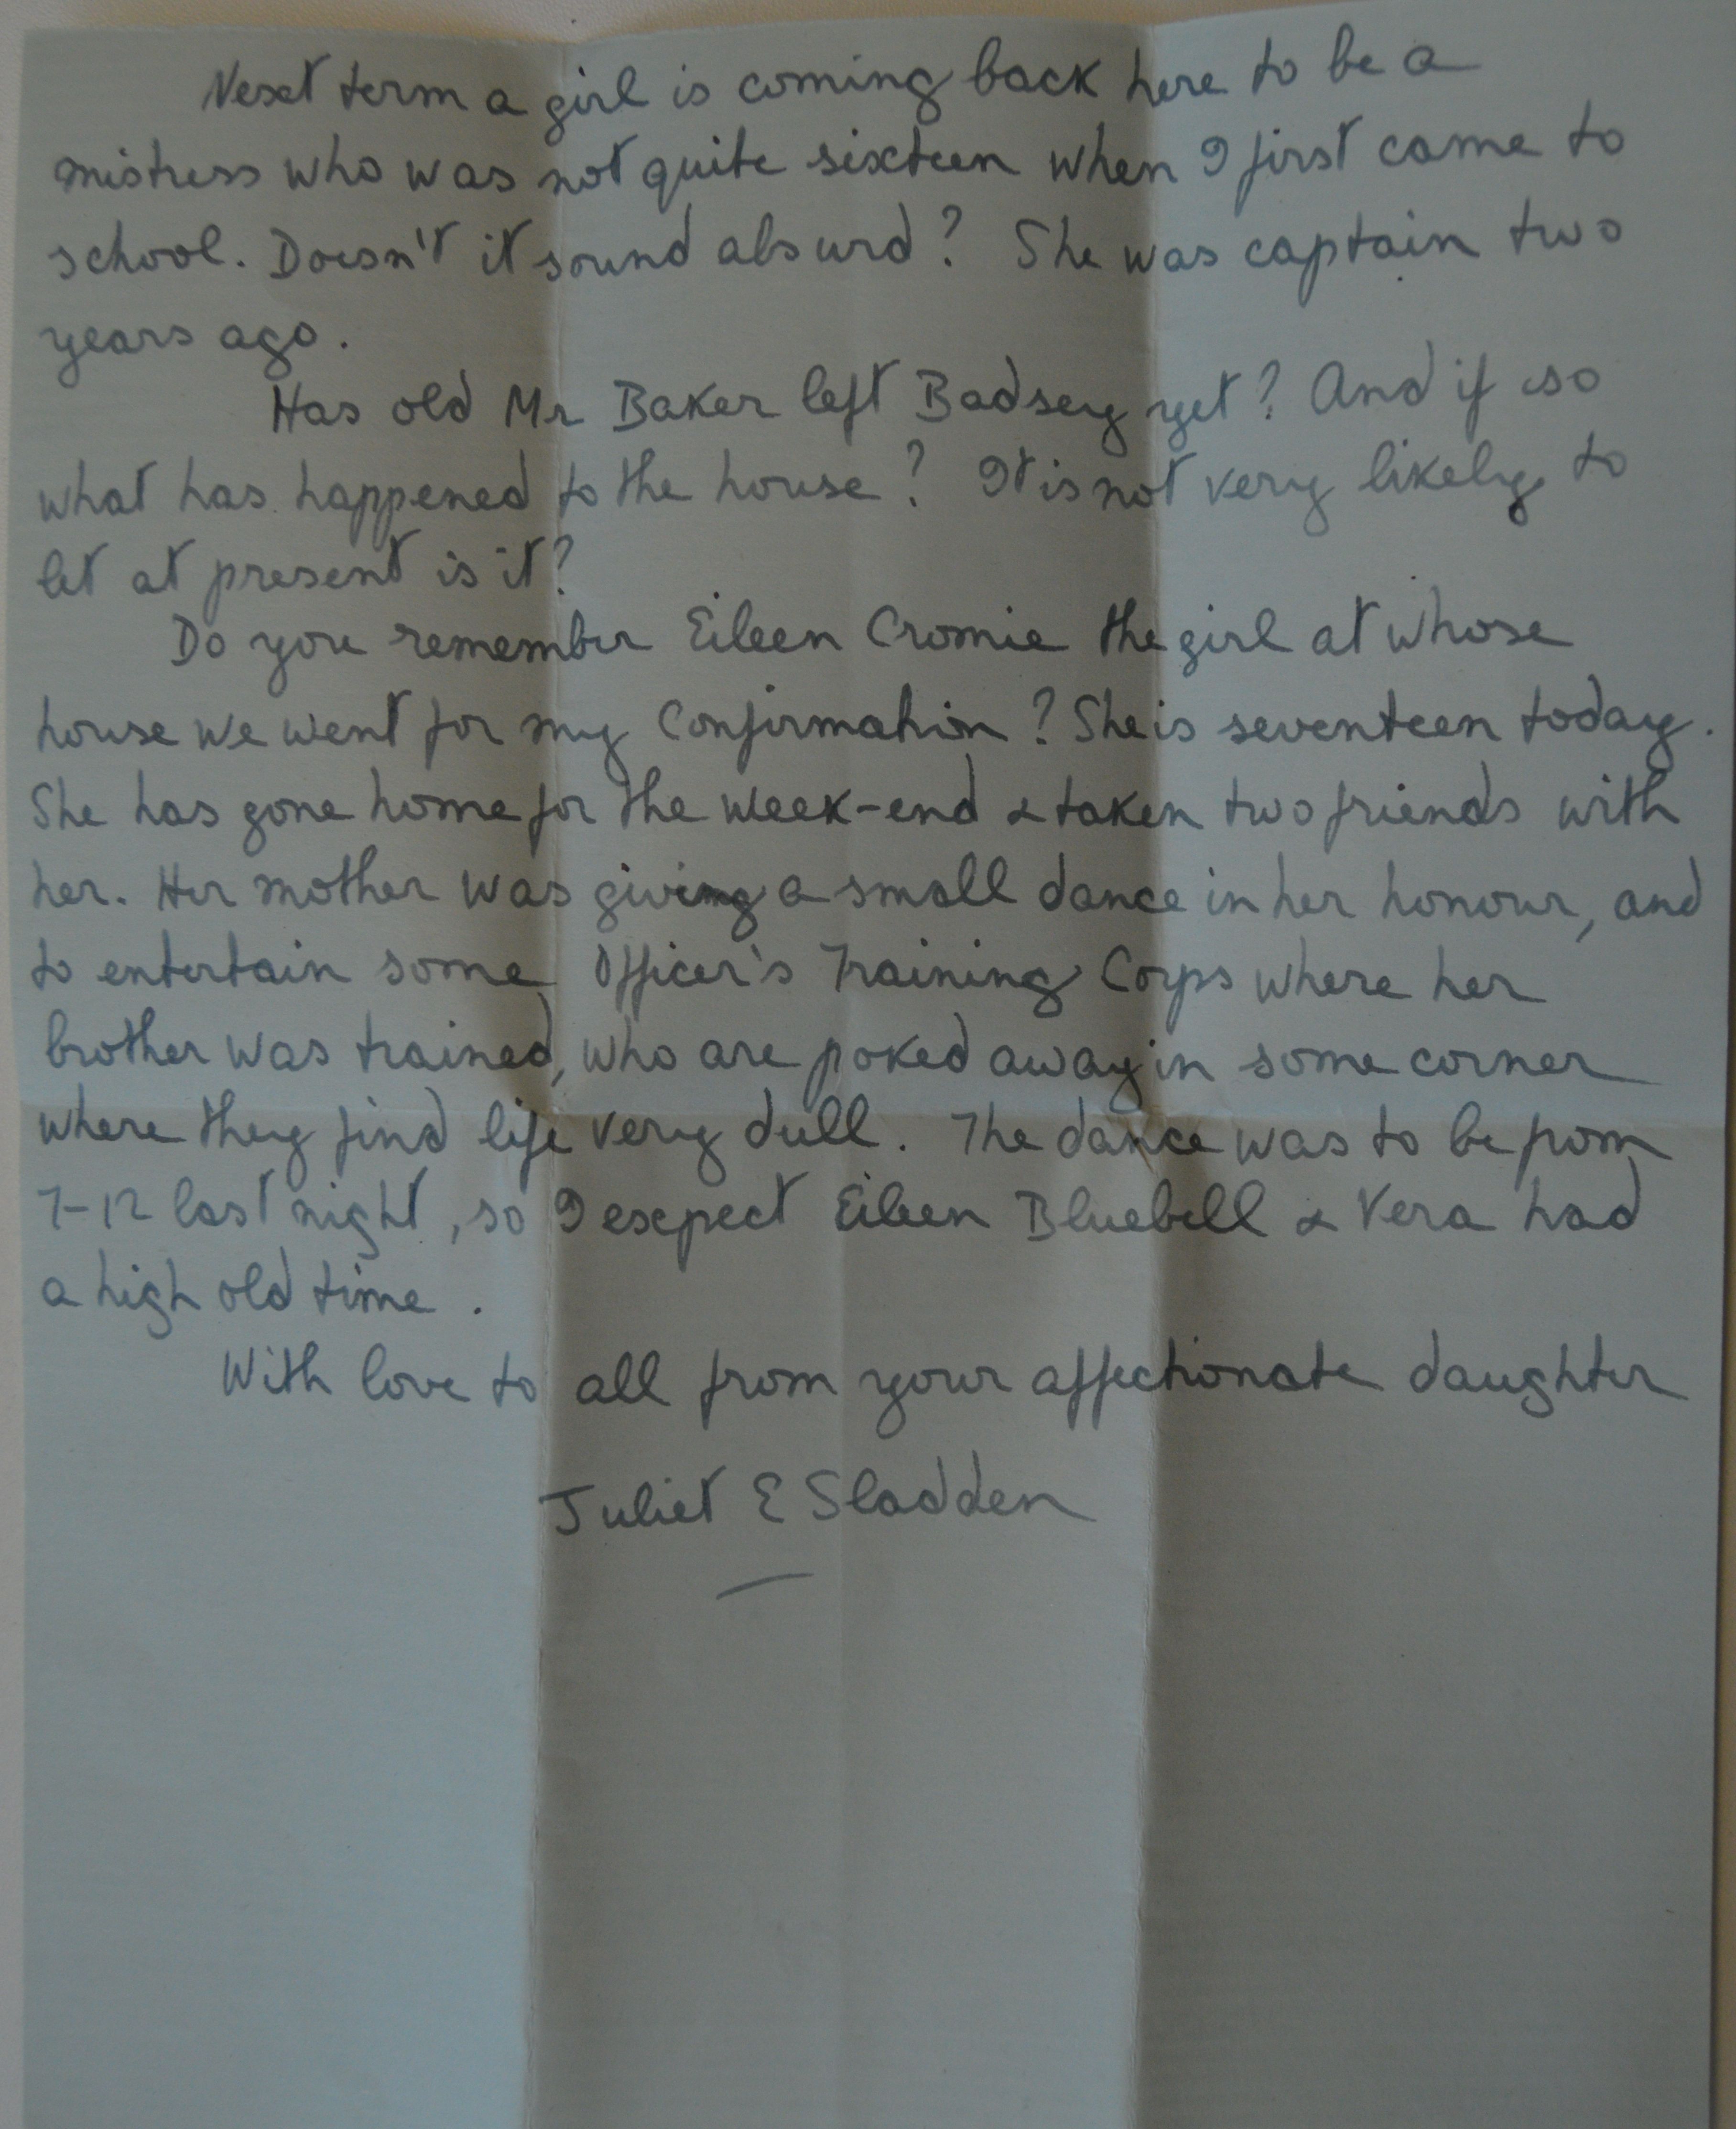 Next term a girl is coming back here to be a
mistress who was not quite sixteen when I first came to
school. Doesn't it sound absurd? She was captain two
years ago.
Has old Mr Baker left Badsey yet? And if so
what has happened to the house? It is not very likely to
let at present is it?
Do you remember Eileen Cromie the girl at whose
house we went for my Confirmation? She is seventeen today.
She has gone home for the week-end & taken two friends with
her. Her mother was giving a small dance in her honour, and
to entertain some Officer's Training Corps where her
brother was trained, who are poked away in some corner
where they find life very dull. The dance was to be from
7-12 last night, so I expect Eileen Bluebell & Vera had
a high old time.
With love to all from your affectionate daughter
Juliet E Sladden